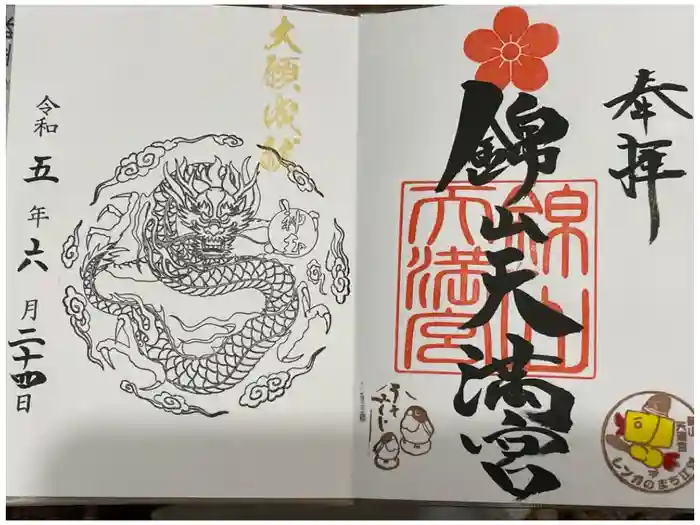 奉拝
錦山天満宮
錦山
天満宮
うそ
みくじ
レンガのまち江別
大願成就
神玉
令和五年六月二十四日